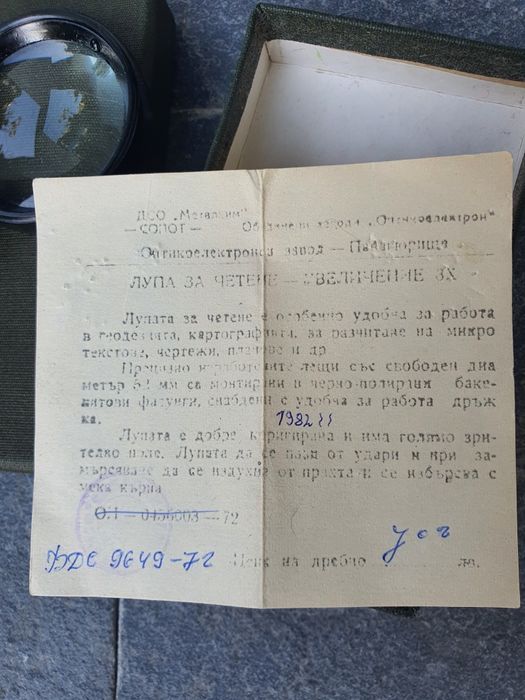 ДСО „Металхим“
— СОПОТ — Обединени заводи „Оптикоелектрон“
Оптикоелектронен завод — Панагюрище
ЛУПА ЗА ЧЕТЕНЕ — УВЕЛИЧЕНИЕ 3X
Лупата за четене е особенно удобна за работа
в геодезията, картографията, за разчитане на микро
текстове, чертежи, планове и др
Прецизно изработените лещи със свободен диа
метър 62 мм са монтирани в черно-полирани баке-
литови фасунги, снабдени с удобна за работа дръж
ка.
1982
Лупата е добре коригирана и има голямо зри-
телно поле. Лупата да се пази от удари и при за-
мърсяване да се издухва от праха и се избърсва с
мека кърпа
ОН — 0456003 — 72
БДС 9649-72 Цена на дребно лв.